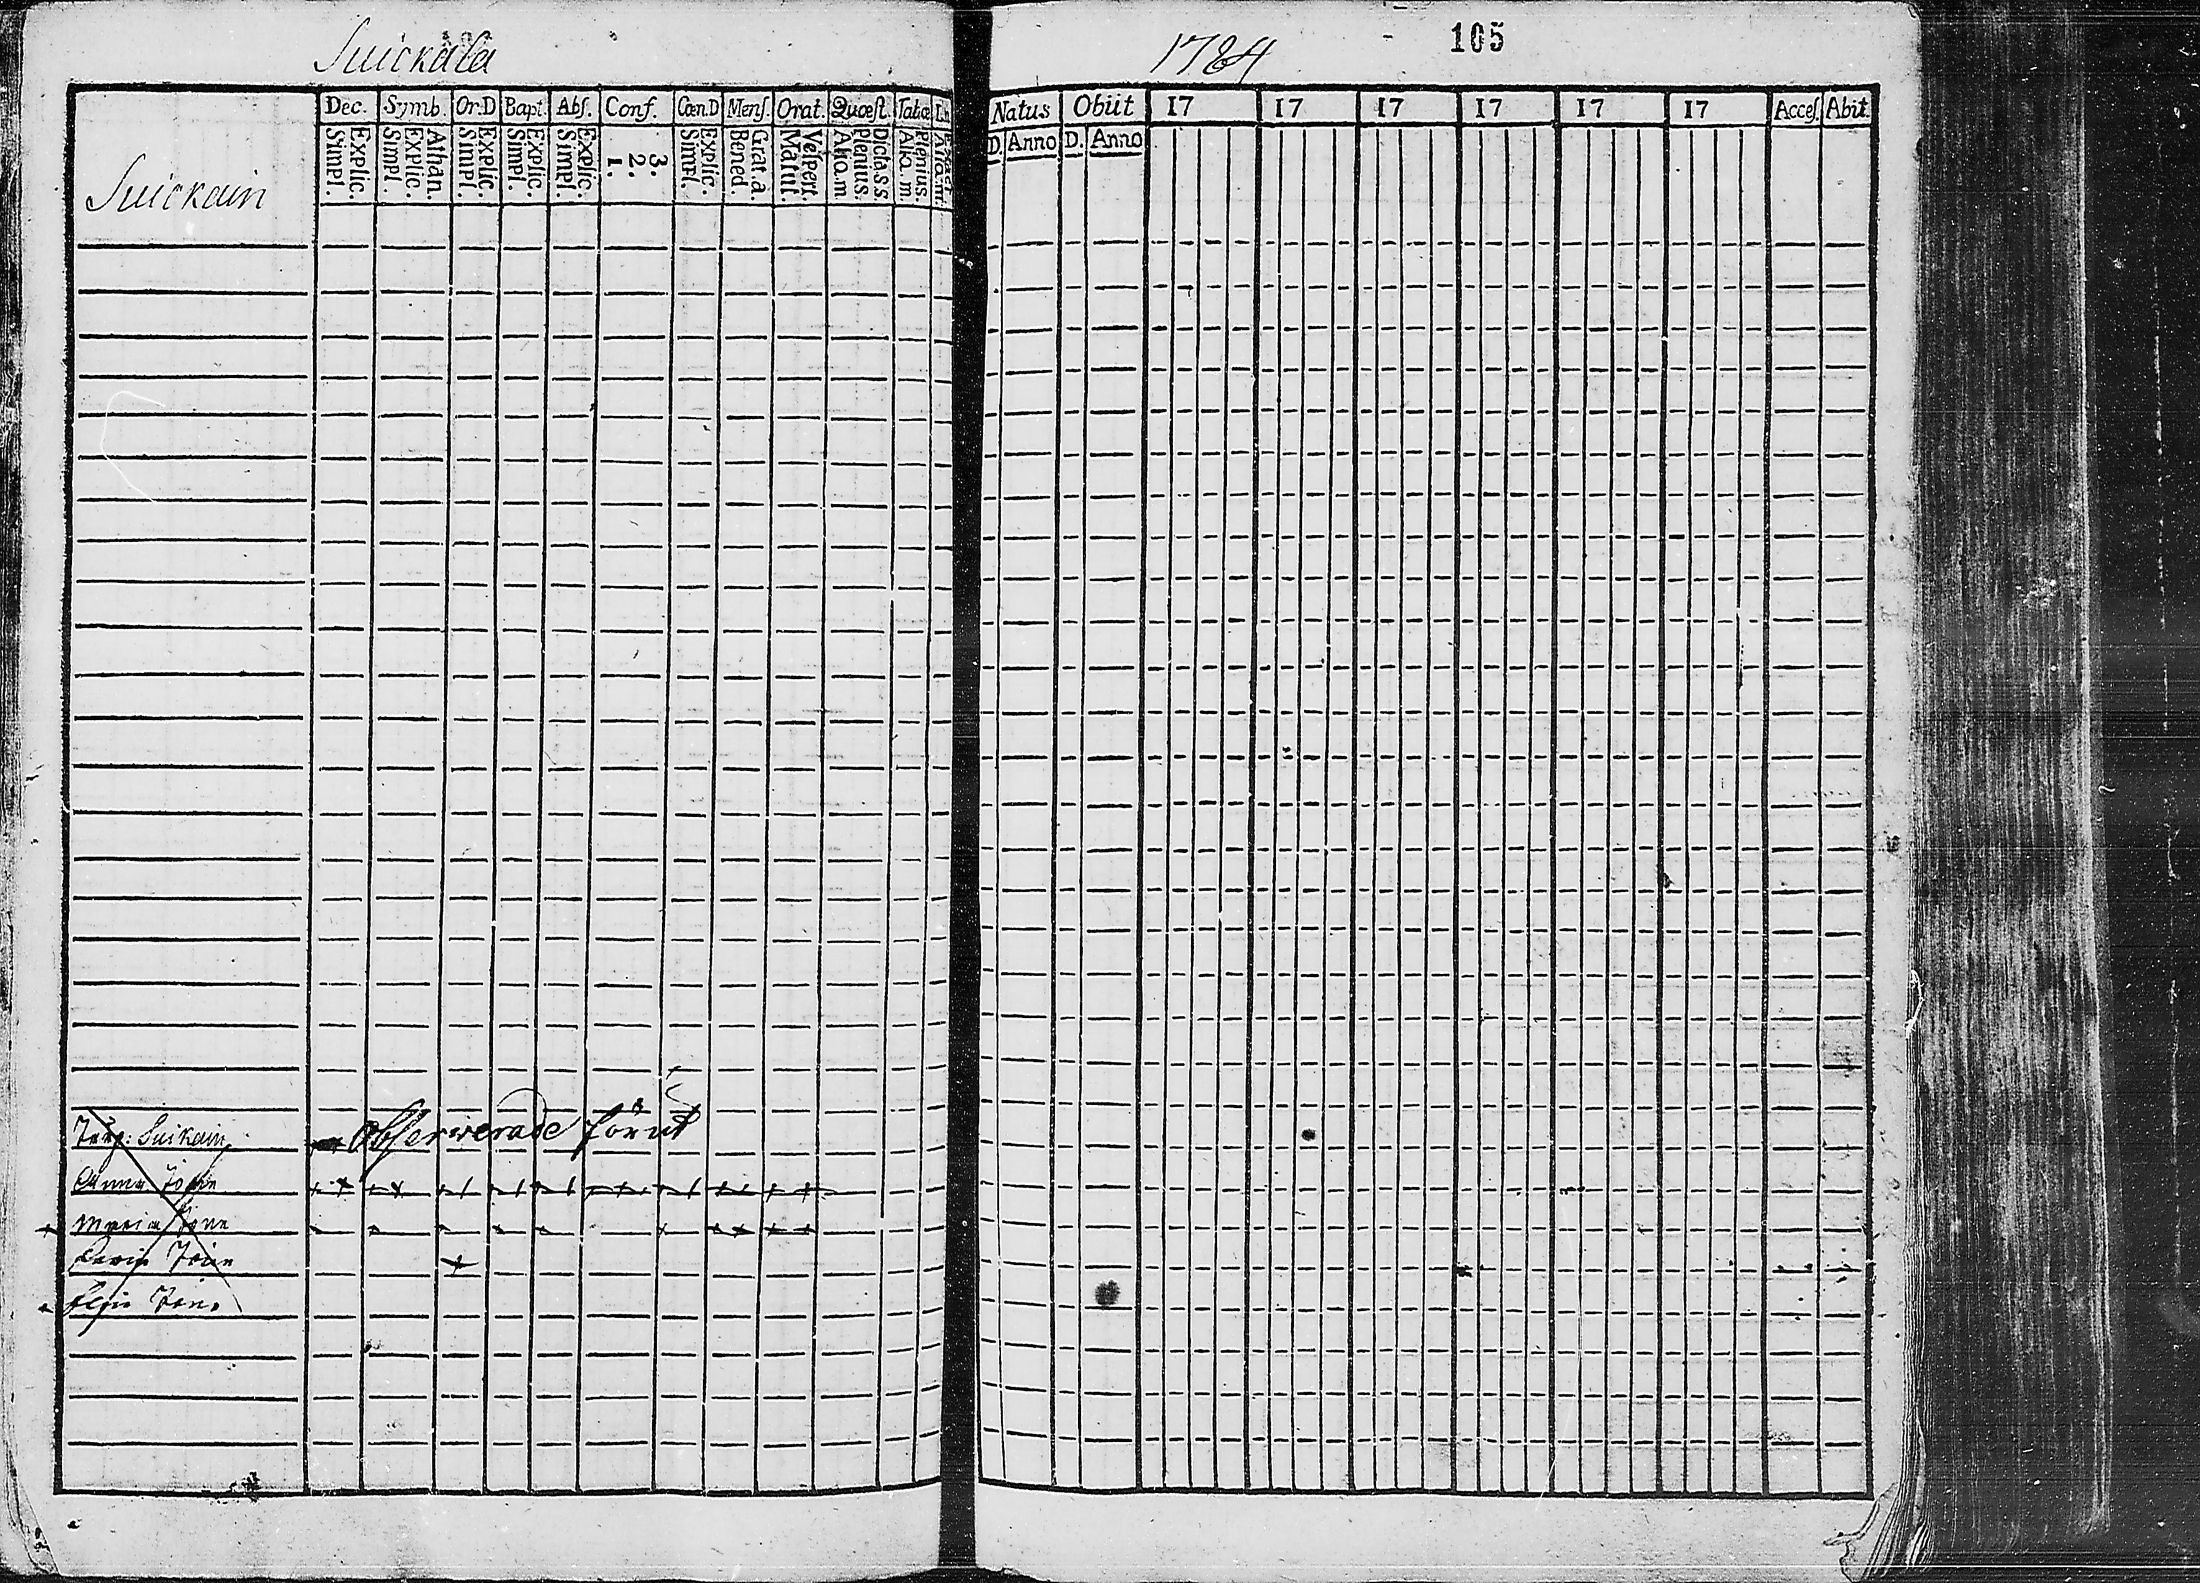 Suickala
1784 105
Dec. Symb. Or.D Bapt. Abs. Conf. Cœn.D Mens. Orat. Quæst. Tabæ Natus Obiit 17 17 17 17 17 17 Acces. Abit.
D. Anno D. Anno
Explic. Simpl. Athan. Explic. Simpl. Explic. Simpl. Explic. Simpl. Explic. Simpl. 3. 2. 1. Explic. Simpl. Grat. a. Bened. Vespert. Matut. Dicta.s.s. plenius. Aliq.m Plenius. Aliq.m.
Suickain
Suikain observerade förut
Anna
Maria
Carin